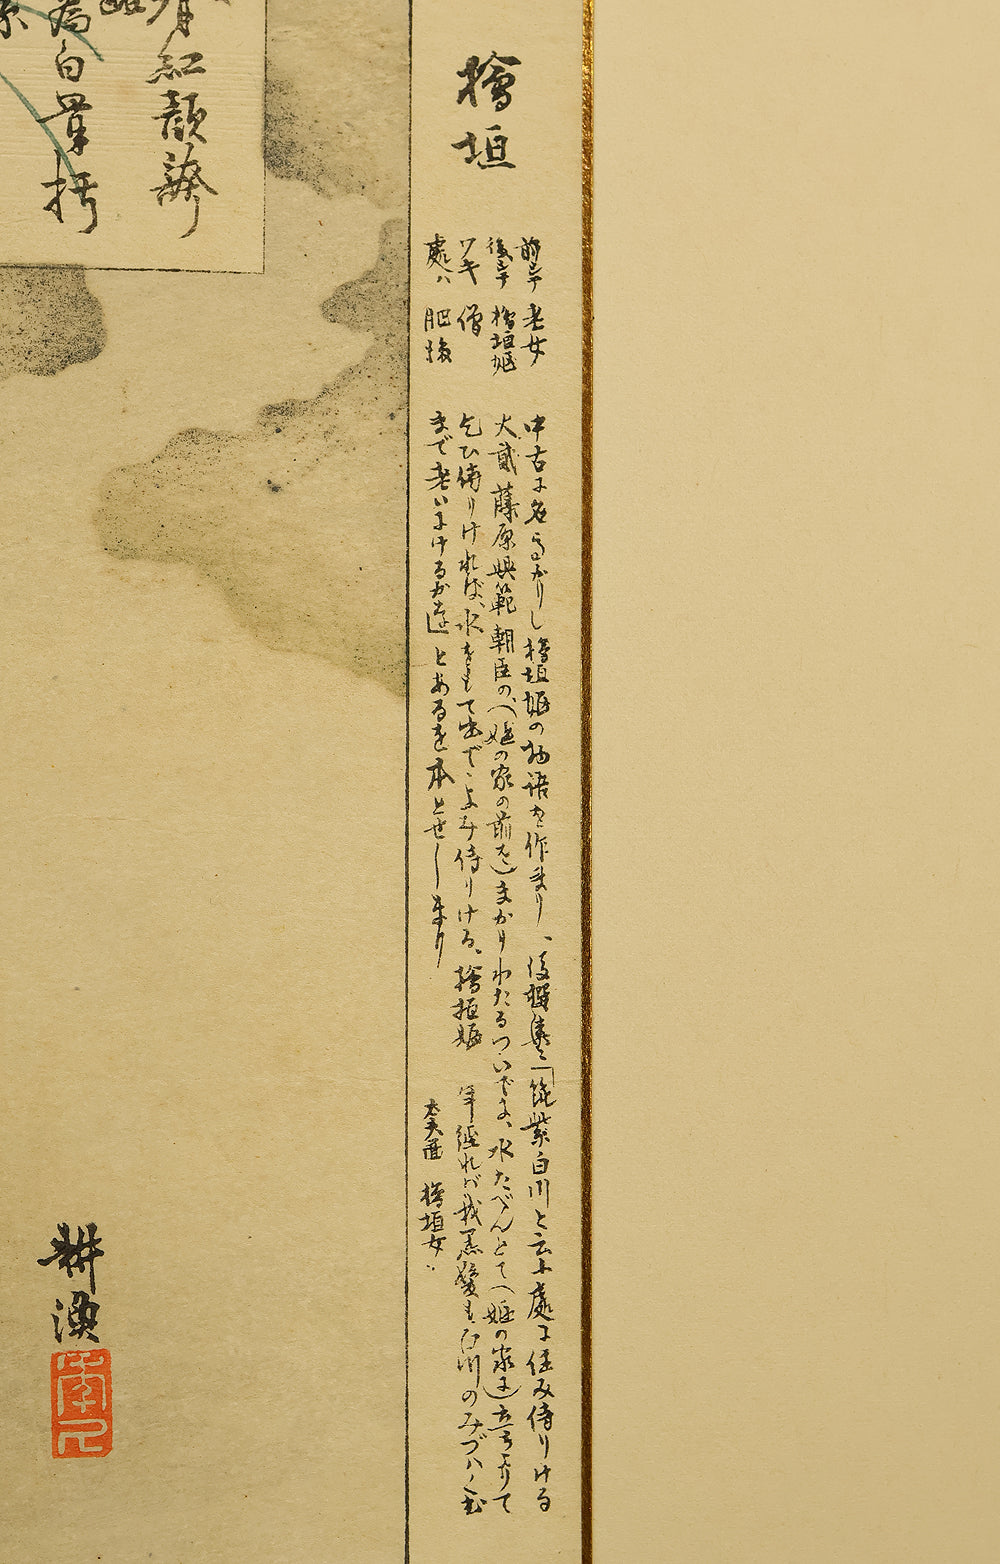 檜垣
前シテ 老女
後シテ 檜垣嫗
ワキ 僧
處ハ 肥後
中古に名高かりし檜垣嫗の物語を作れり、後撰集に「筑紫白川と云ふ處に住み侍りける
大貳藤原興範朝臣の(嫗の家の前を)まかりわたるついでに、水たべんとて(嫗の家に)立ちよりて
乞ひ侍りければ、水をもて出で、よみ侍りける、檜垣嫗 年經れば我黒髪も白川のみづハ
まで老いにけるか」とあるを本とせしなり
檜垣女
紅顔
白
耕漁